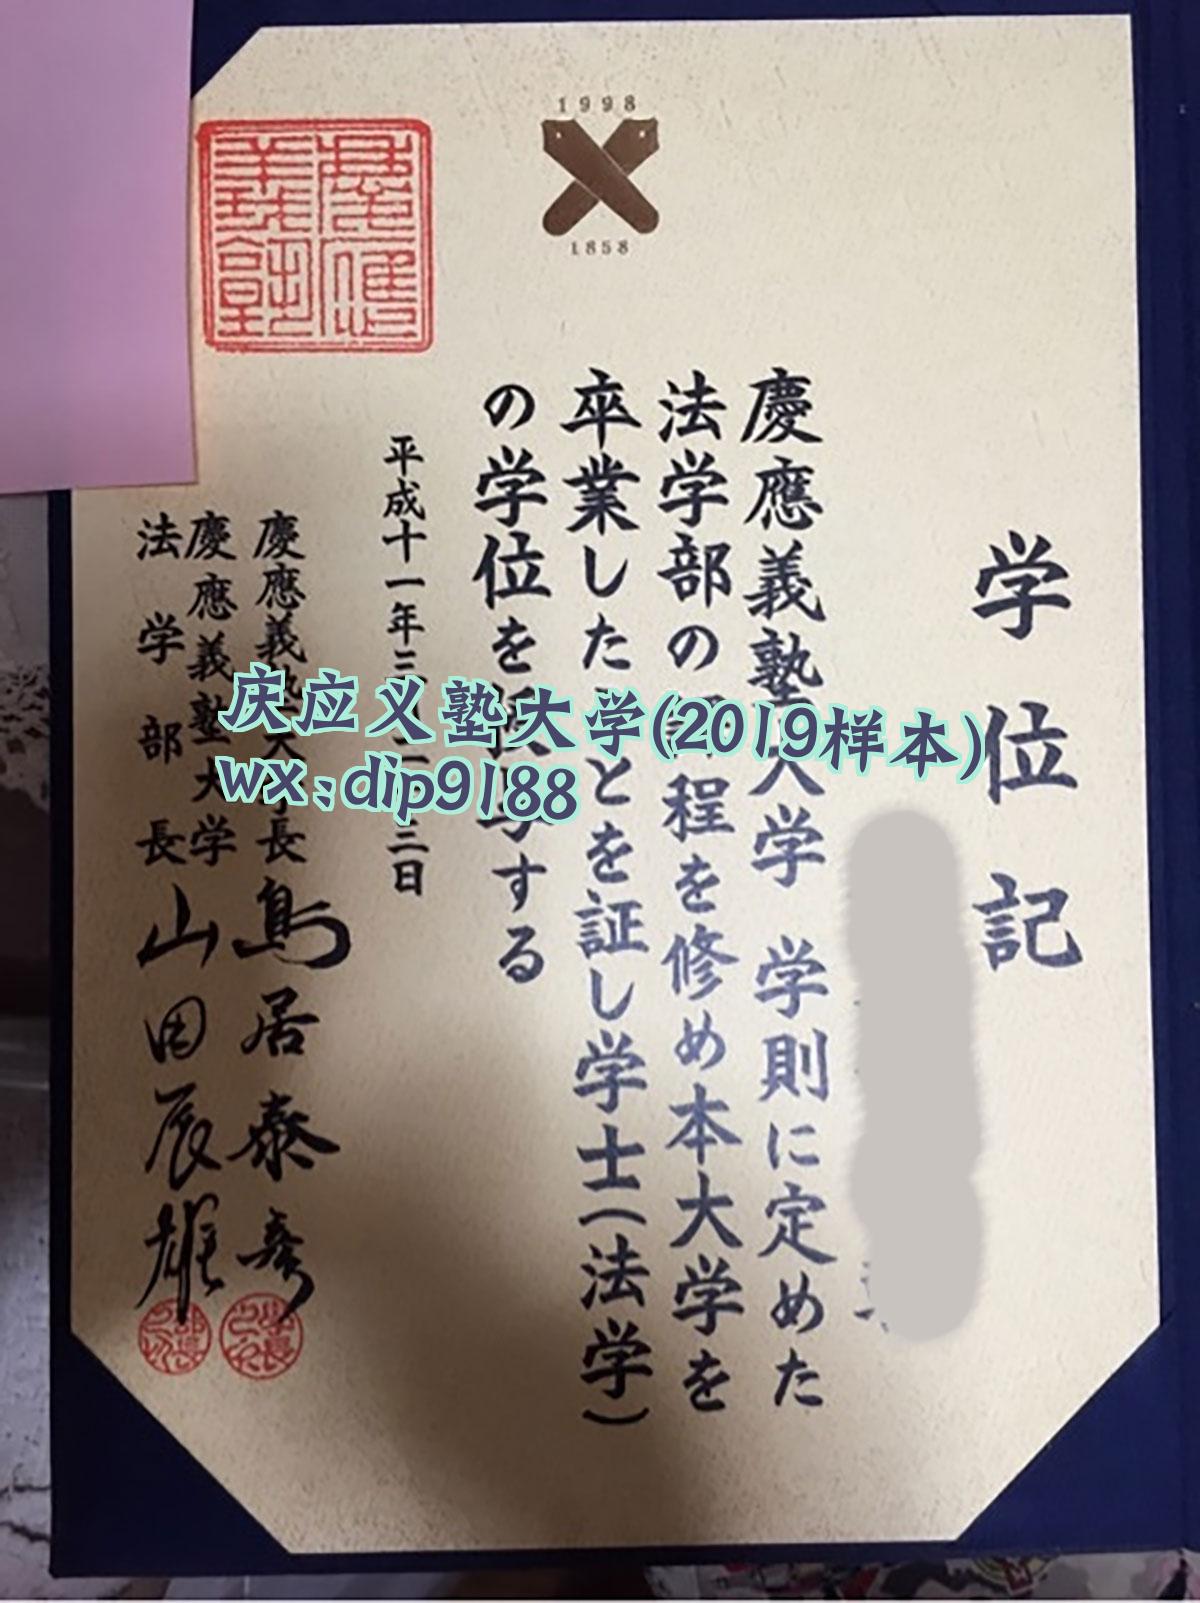 1998
1858
慶應義塾
学位記
慶應義塾大学学則に定めた
法学部の課程を修め本大学を
卒業したことを証し学士(法学)
の学位を授与する
平成十一年三月二十三日
慶應義塾大学長 鳥居泰彦
慶應義塾大学
法学部長 山田辰雄
庆应义塾大学(2019样本)
wx:dip9188